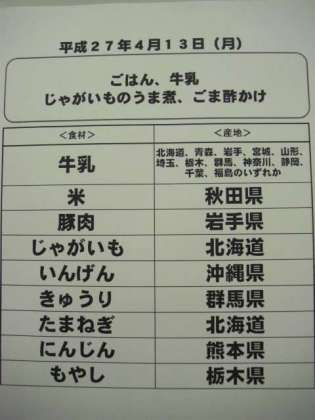 平成27年4月13日(月)
ごはん、牛乳
じゃがいものうま煮、ごま酢かけ
<食材> <産地>
牛乳 北海道、青森、岩手、宮城、山形、
埼玉、栃木、群馬、神奈川、静岡、
千葉、福島のいずれか
米 秋田県
豚肉 岩手県
じゃがいも 北海道
いんげん 沖縄県
きゅうり 群馬県
たまねぎ 北海道
にんじん 熊本県
もやし 栃木県